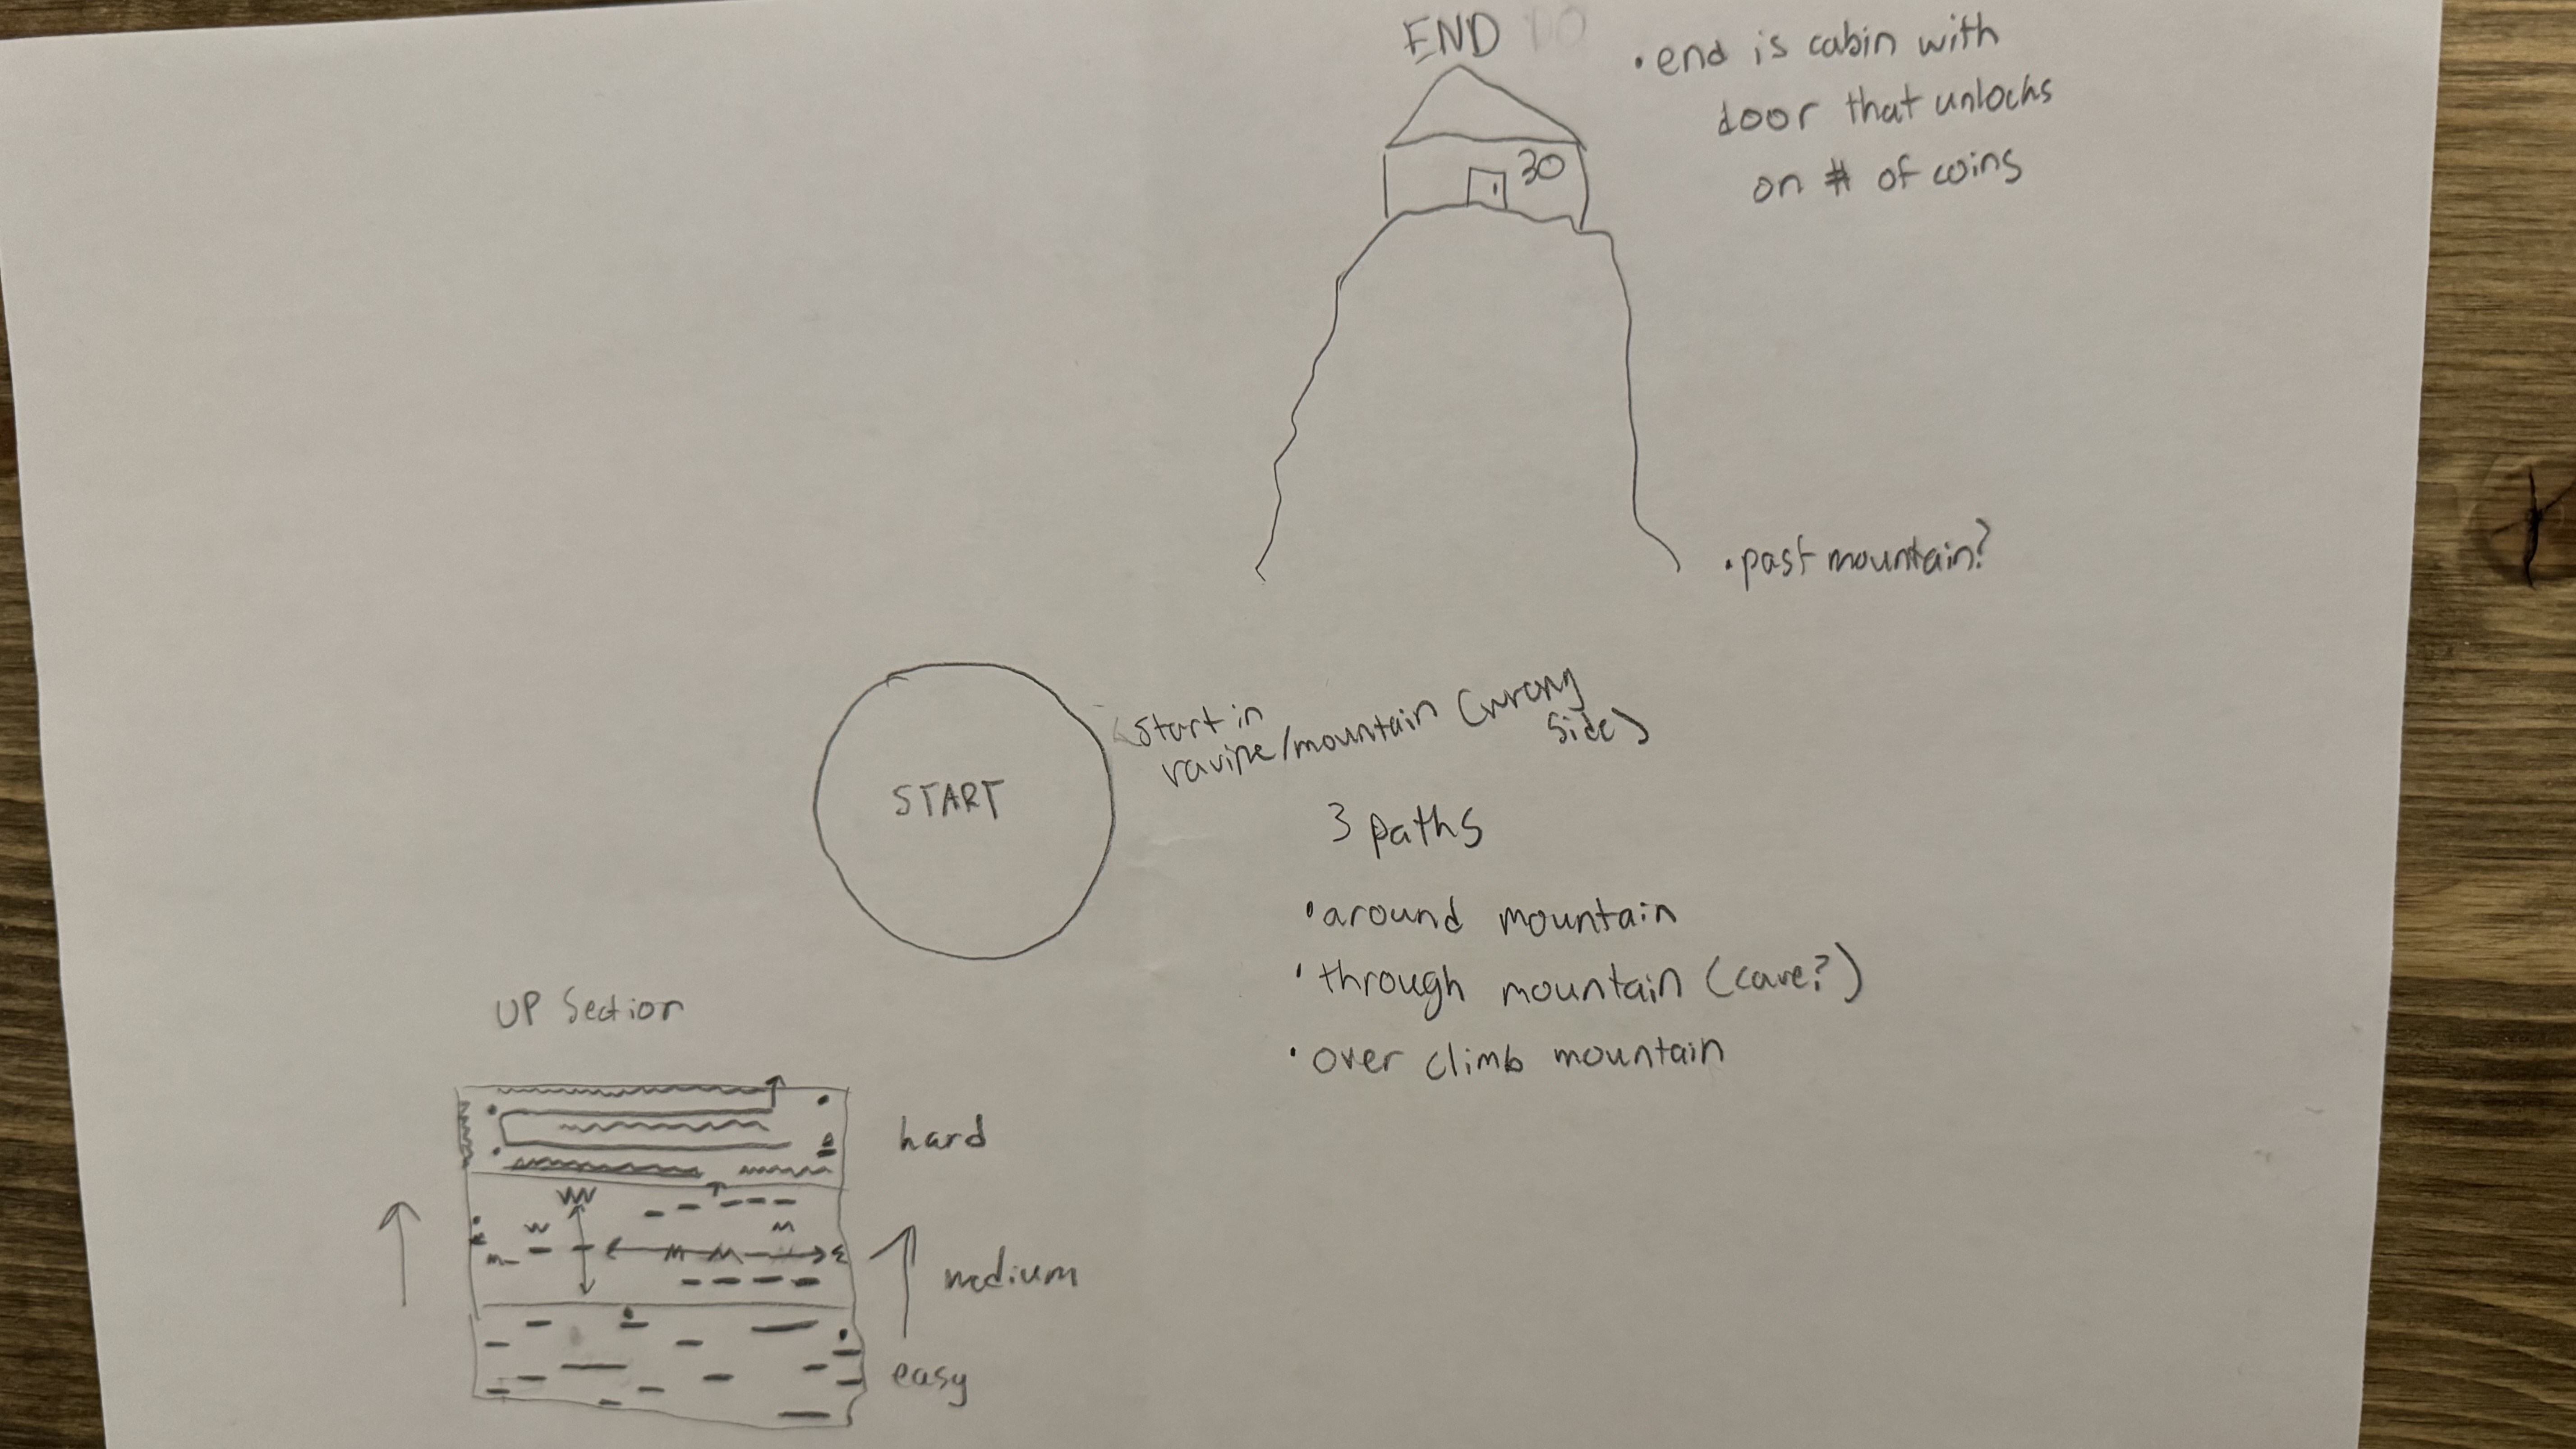 END
• end is cabin with
door that unlocks
on # of coins
30
• past mountain?
START
Start in
ravine/mountain (wrong
side)
3 paths
• around mountain
• through mountain (cave?)
• over climb mountain
UP Section
hard
medium
easy